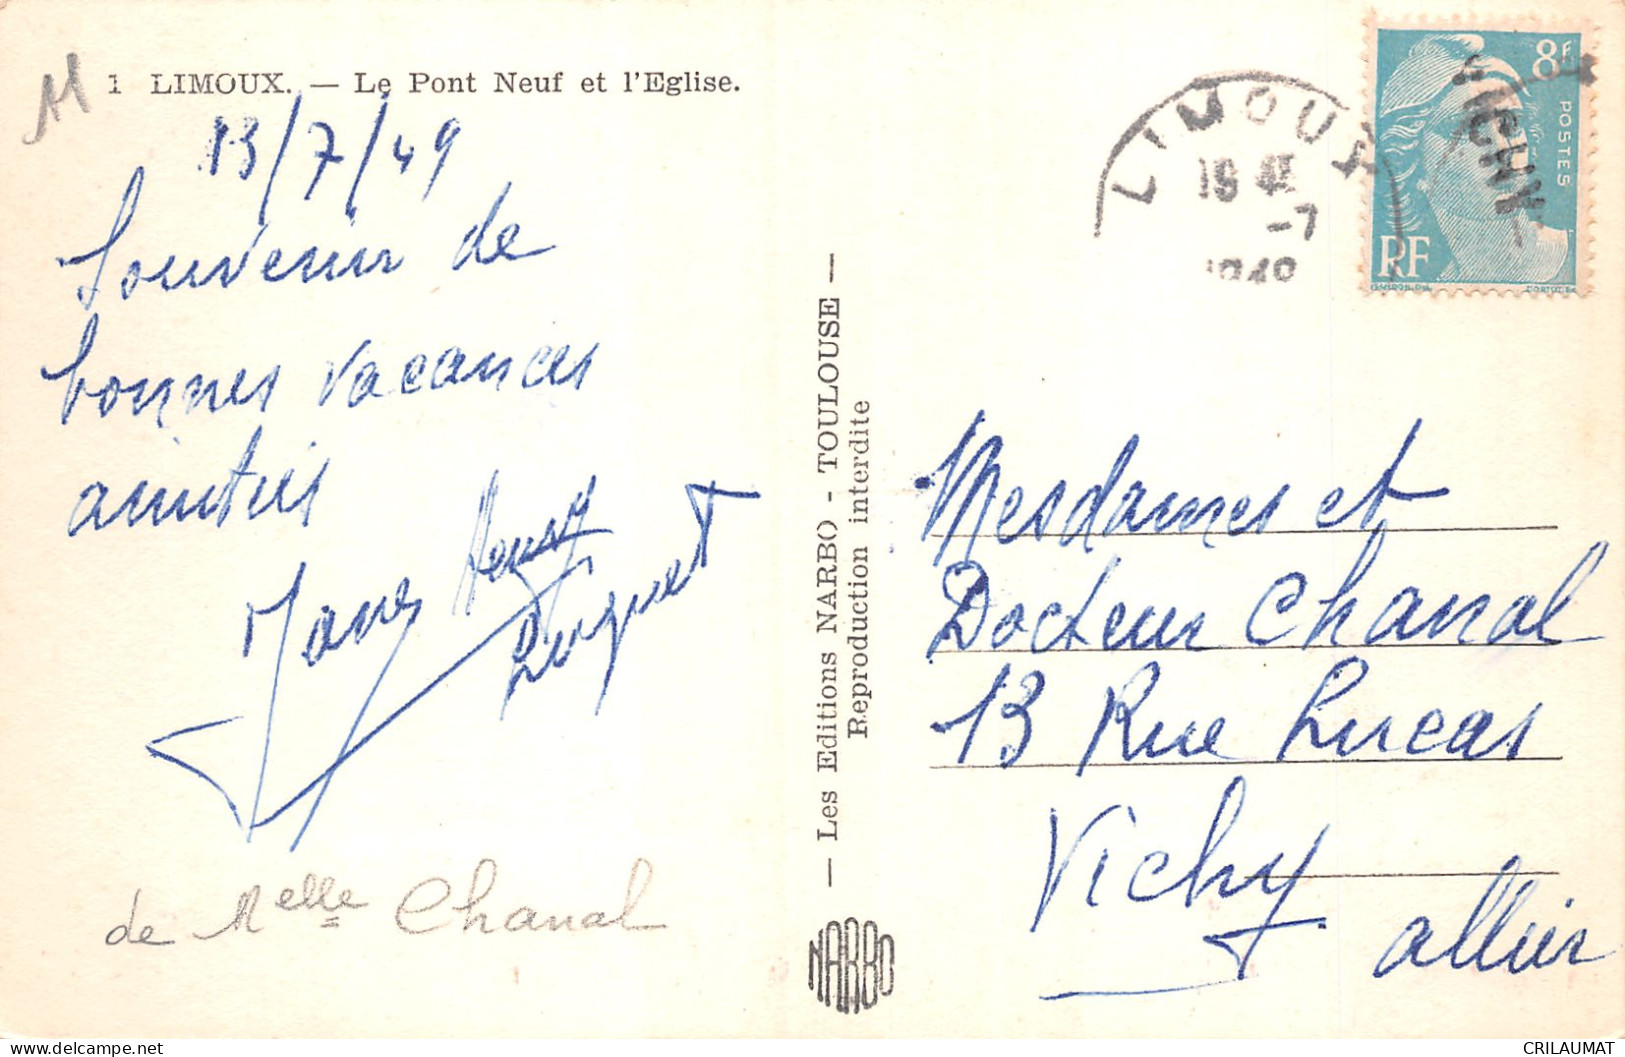 1 LIMOUX. — Le Pont Neuf et l'Eglise.
13/7/49
Souvenir de
bonnes vacances
amitiés
de Melle Chanal
— Les Editions NARBO - TOULOUSE —
Reproduction interdite
NARBO
LIMOUX
-7
8F
POSTES
RF
VICHY
Mesdames et
Docteur Chanal
13 Rue Lucas
Vichy
allier
CRILAUMAT